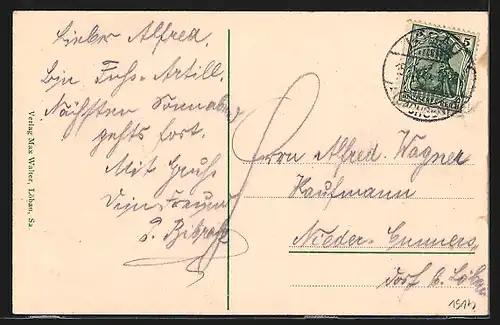 Lieber Alfred.
bin Fuß-Artill.
Nächsten Sonnabend
gehts fort.
Mit Gruß
Dein Freund
Herrn Alfred Wagner
Kaufmann
Nieder-Cunners-
dorf b. Löbau
1514
5
Verlag Max Walter, Löbau, Sa.